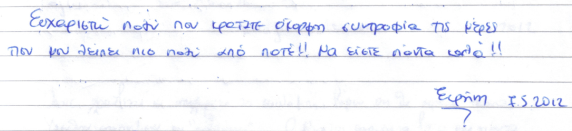 Ευχαριστώ πολύ που κρατάτε όμορφη συντροφιά τις μέρες
που μου λείπει πιο πολύ από ποτέ!! Να είστε πάντα καλά!!
Ειρήνη 7.5.2012
?